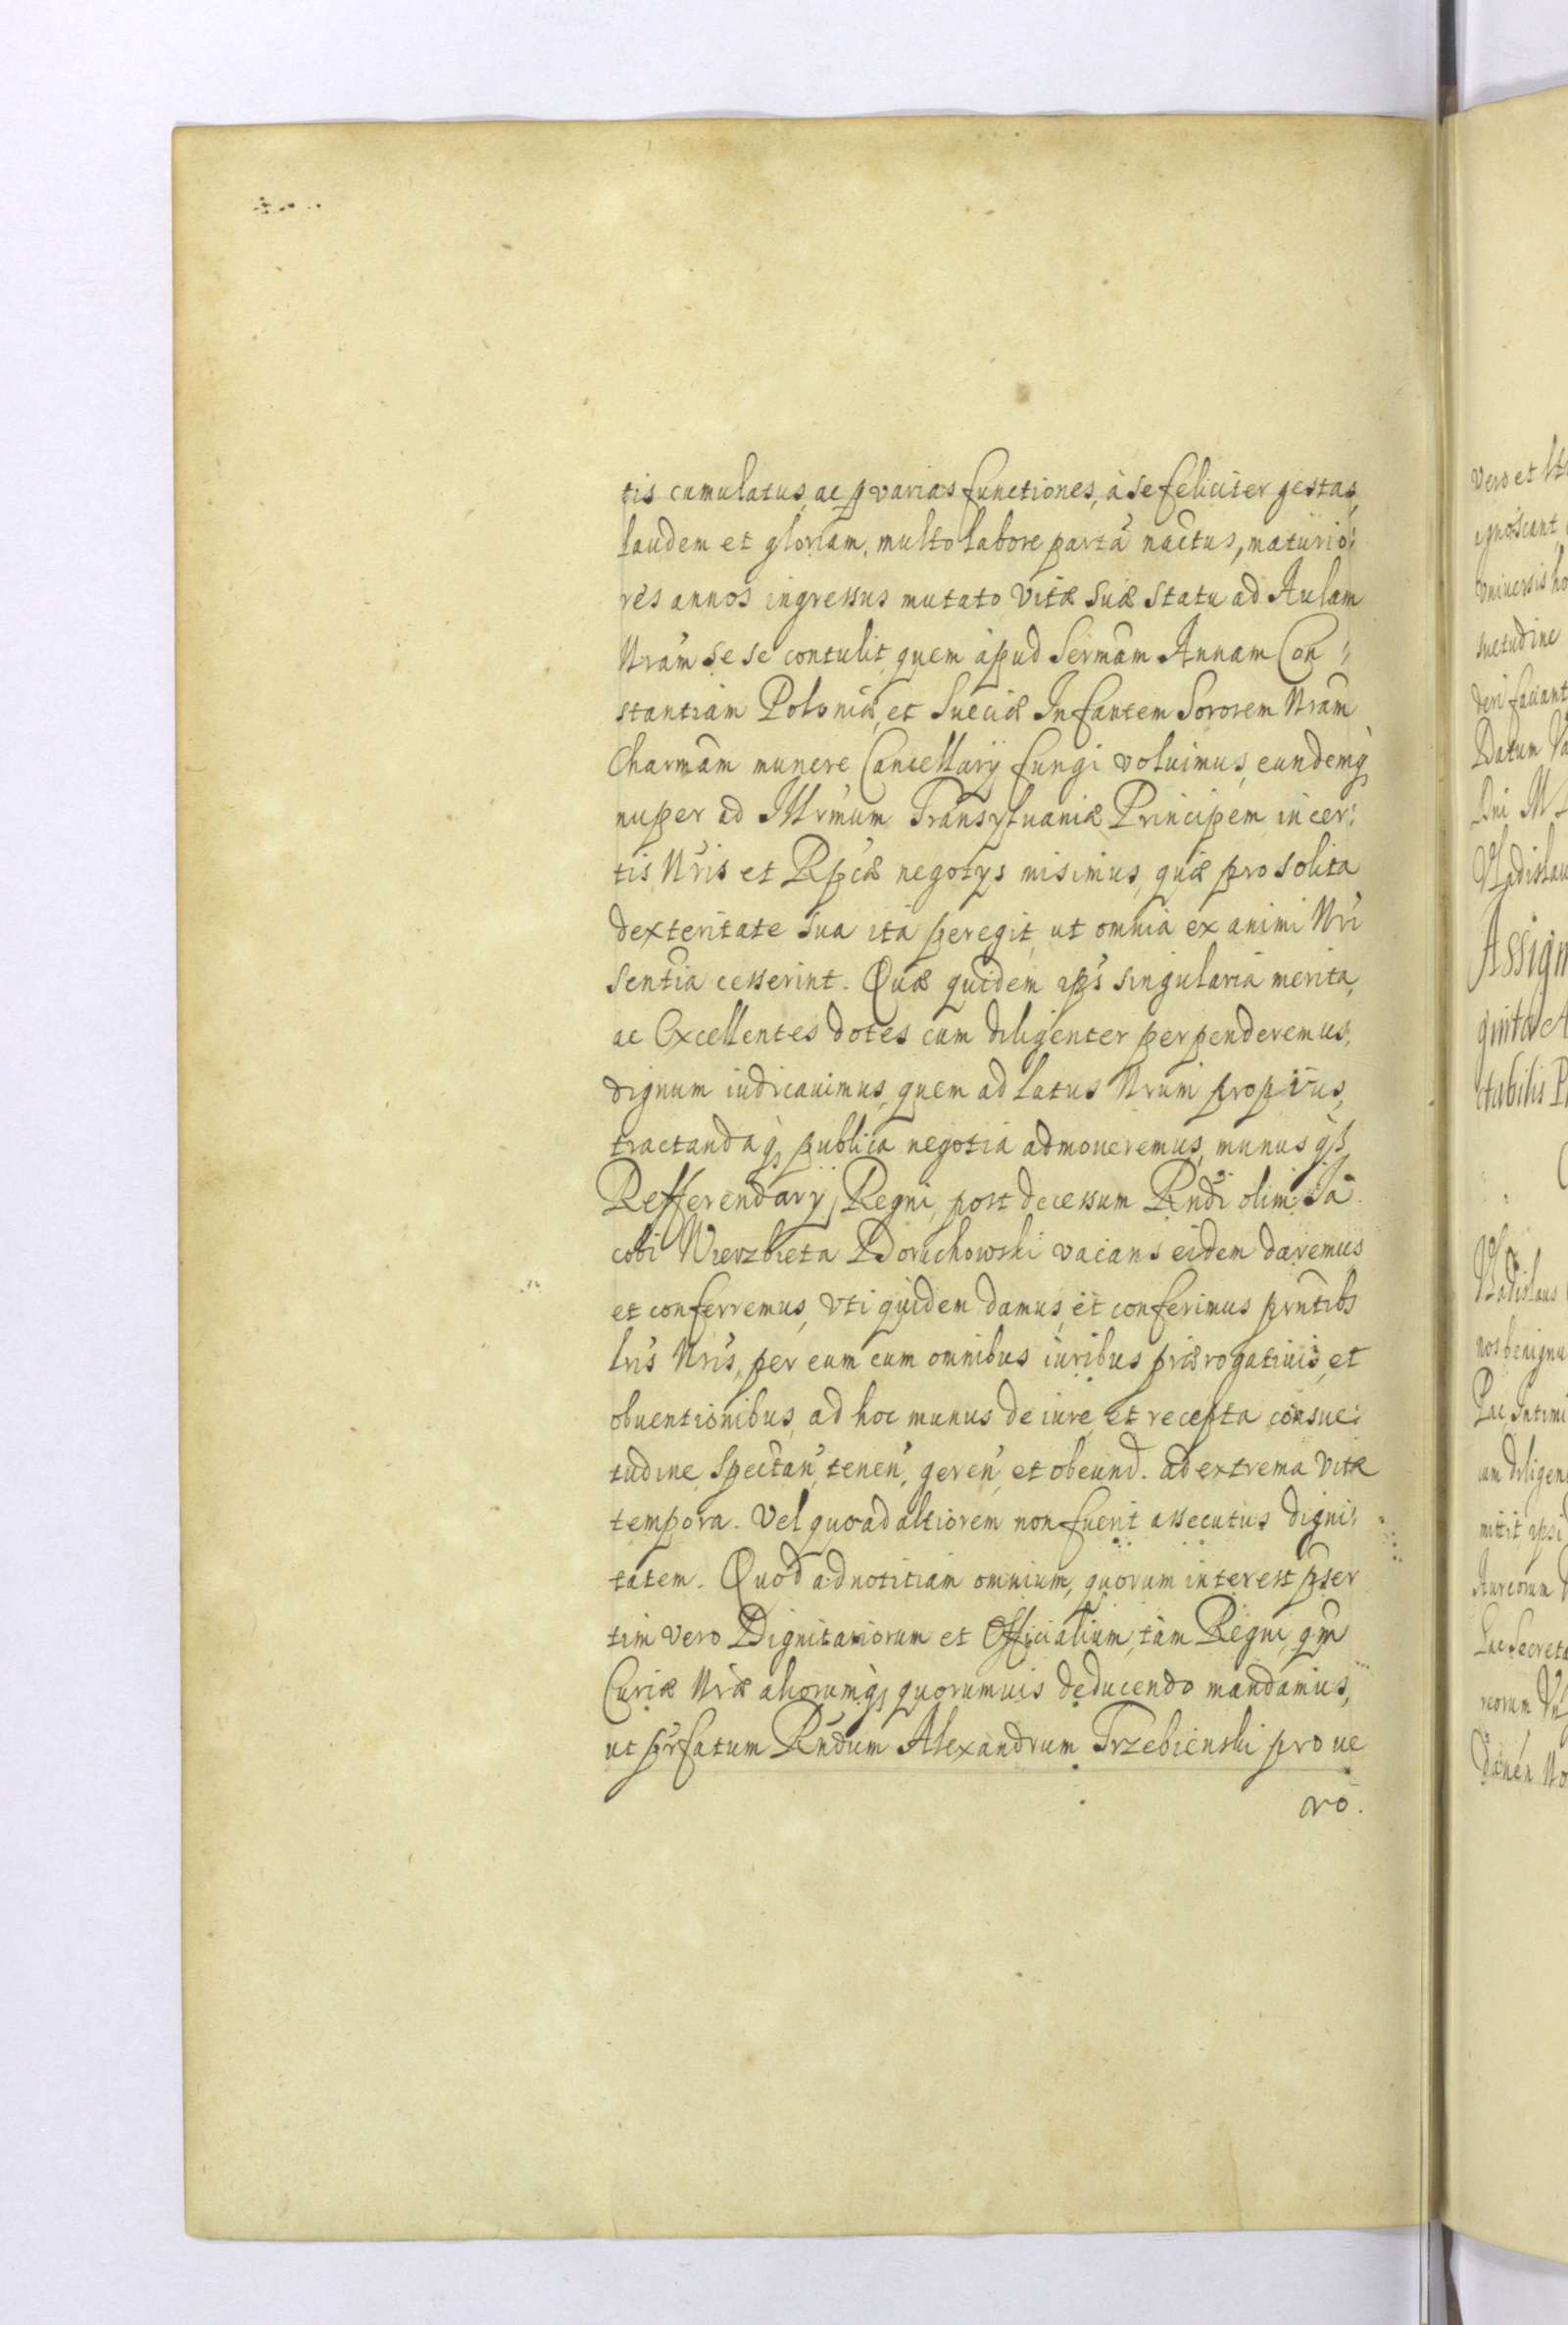 tis cumulatus, ac p varias functiones, à se feliciter gestas,
laudem et gloriam, multo labore partá nactus, maturio:
res annos ingressus mutato vitæ suæ statu ad Aulam
Nram se se contulit, quem apud Sermam Annam Con:
stantiam Poloniæ, et Sueciæ Infantem Sororem Nram
Charmam munere Cancellarÿ fungi voluimus, eundemq
nuper ad Illrmum Transyluaniæ Principem in cer:
tis Nris et Rpcæ negotys misimus, quæ pro solita
dexteritate sua ita peregit, ut omnia ex animi Nri
sentia cesserint. Quæ quidem ips singularia merita,
ac Excellentes dotes cum diligenter perpenderemus,
dignum iudicauimus, quem ad latus Nrum propius,
tractandaq publica negotia admoueremus, munus q
Refferendarÿ Regni, post decessum Rndi olim Ja
cobi Wierzbieta Doruchowski vacans eidem daremus
et conferremus, vti quidem damus, et conferimus prntibs
lris Nris, per eum cum omnibus iuribus prærogatiuis, et
obuentionibus, ad hoc munus de iure, et recepta consue:
tudine, spectan, tenen, geren, et obeund. ad extrema vitæ
tempora. Vel quoad altiorem non fuerit assecutus digni:
tatem. Quod ad notitiam omnium, quorum interest pser
tim vero Dignitariorum et Officialium, tàm Regni, qm
Curiæ Nræ aliorumq quorumuis deducendo mandamus,
ut prfatum Rndum Alexandrum Trzebienski pro ve
ro.
vero et
ignoscant
vniuersis ho
suetudine
deri faciant
Datum Va
Dni M
Vladislau
Assign
ctabilis P
Vladislaus
nos benigna
Pac Intimi
cum diligen
mittit ipsi
Aureorum
Lac Secreta